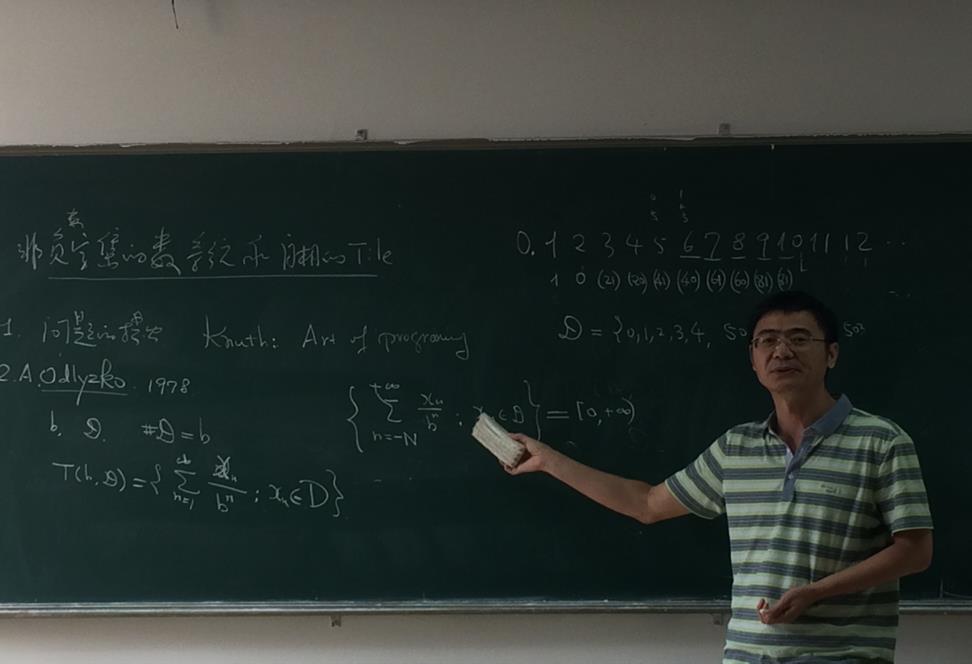 非负整数集的数系统和自相似Tile
1. 问题的提出 Knuth: Art of programing
2. A. Odlyzko. 1978
b. D. #D=b
T(b, D) = { ∑_{n=1}^{∞} x_n/b^n ; x_n ∈ D }
{ ∑_{n=-N}^{+∞} x_n/b^n ; x_n ∈ D } = [0, +∞)
0. 1 2 3 4 5 6 7 8 9 10 11 12 ...
1 0 (21) (20) (41) (40) (61) (60) (81)
D = {0, 1, 2, 3, 4, 50